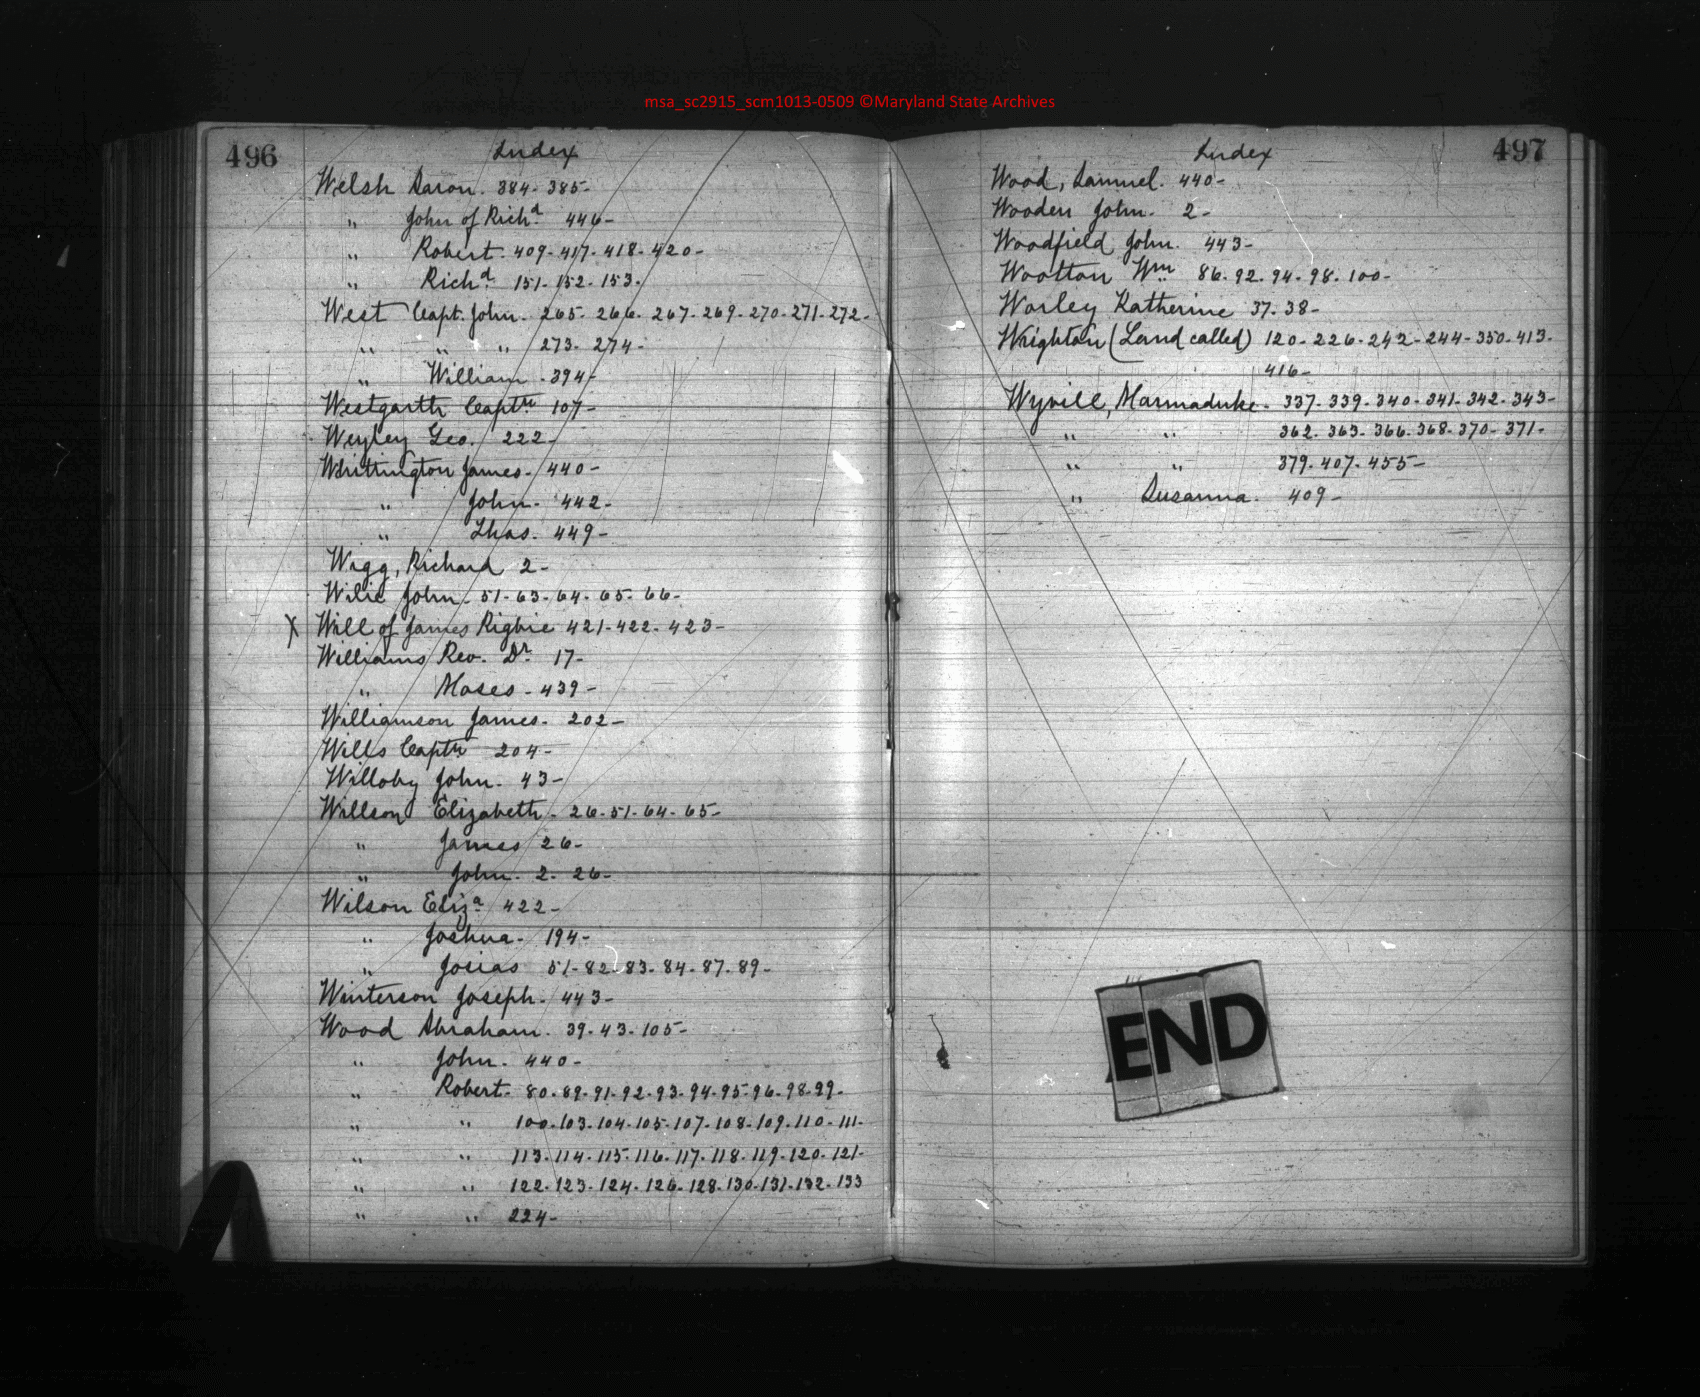 msa_sc2915_scm1013-0509 ©Maryland State Archives
496
Index
Welsh Aaron. 384- 385-
" John of Richd 446-
" Robert. 409- 417- 418- 420-
" Richd 151- 152- 153.
West Capt. John. 265- 266- 267- 269- 270- 271- 272-
" " " 273- 274-
" William -394-
Westgarth Captn 107-
Weyley Geo. 222-
Whittington James- 440-
" John. 442-
" Thos. 449-
Wigg, Richard 2-
Wilie John. 51- 63- 64- 65- 66-
X Will of James Rigbie 421-422- 423-
Williams Rev. Dr. 17-
" Moses- 439-
Williamson James- 202-
Wills Captn 204-
Willoby John. 43-
Willson Elizabeth- 26-51-64-65-
" James 26-
" John. 2- 26-
Wilson Eliza 422-
" Joshua- 194-
" Josias 51-82-83-84-87-89-
Winterson Joseph- 443-
Wood Abraham. 39-43-105-
" John. 440-
" Robert- 80-89-91-92-93-94-95-96-98-99-
" " 100-103-104-105-107-108-109-110-111-
" " 113-114-115-116-117-118-119-120-121-
" " 122-123-124-126-128-130-131-132-133
" " 224-
497
Index
Wood, Samuel. 440-
Wooden John. 2-
Woodfield John. 443-
Wootton Wm 86-92-94-98-100-
Worley Katherine 37-38-
Wrighton (Land called) 120-226-242-244-350-413-
416-
Wyvill, Marmaduke- 337-339-340-341-342-343-
" " 362-363-366-368-370-371-
" " 379-407-455-
" Susanna. 409-
END